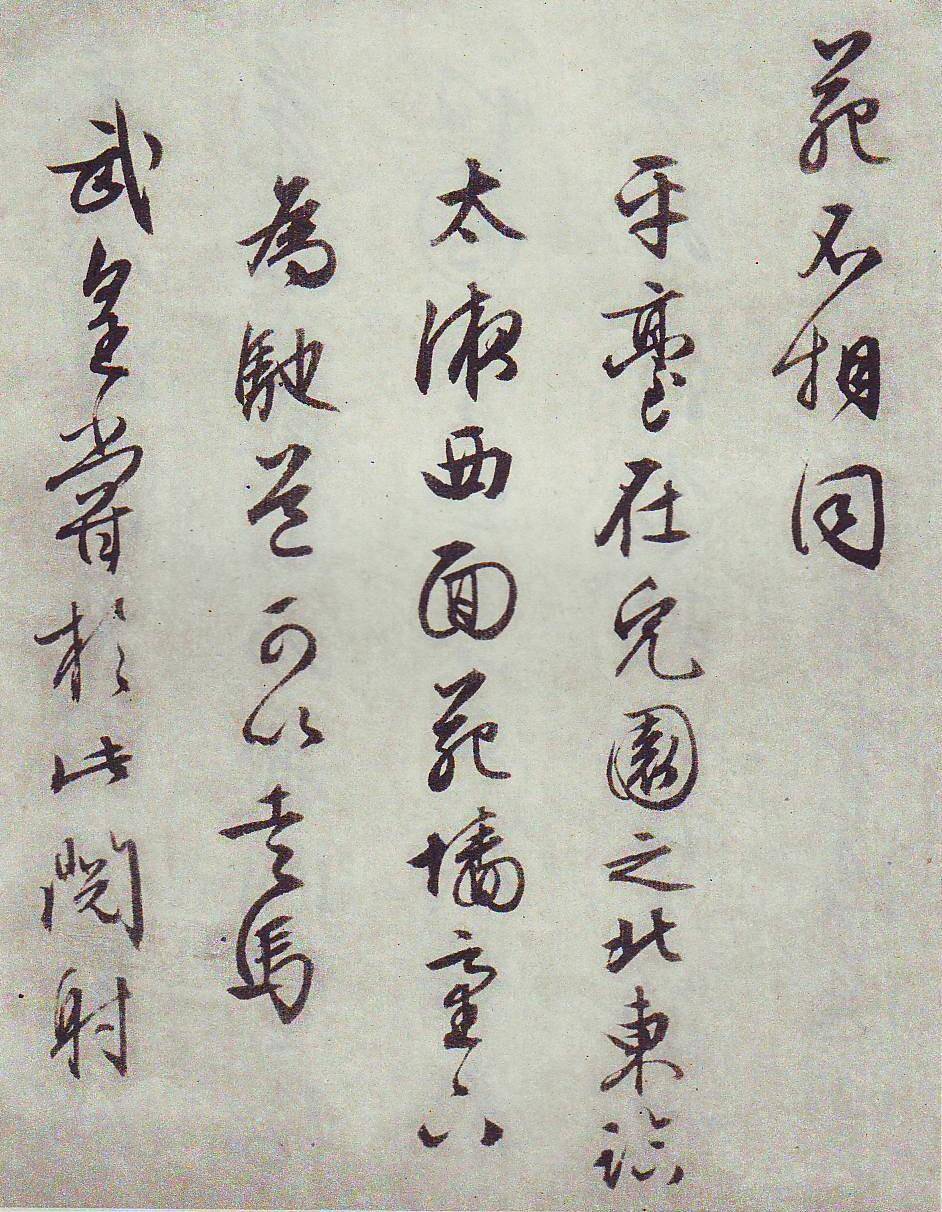 苑不相同
平臺在兔園之北東臨
太液西面苑墻臺下
為馳道可以走馬
武皇嘗於此閱射